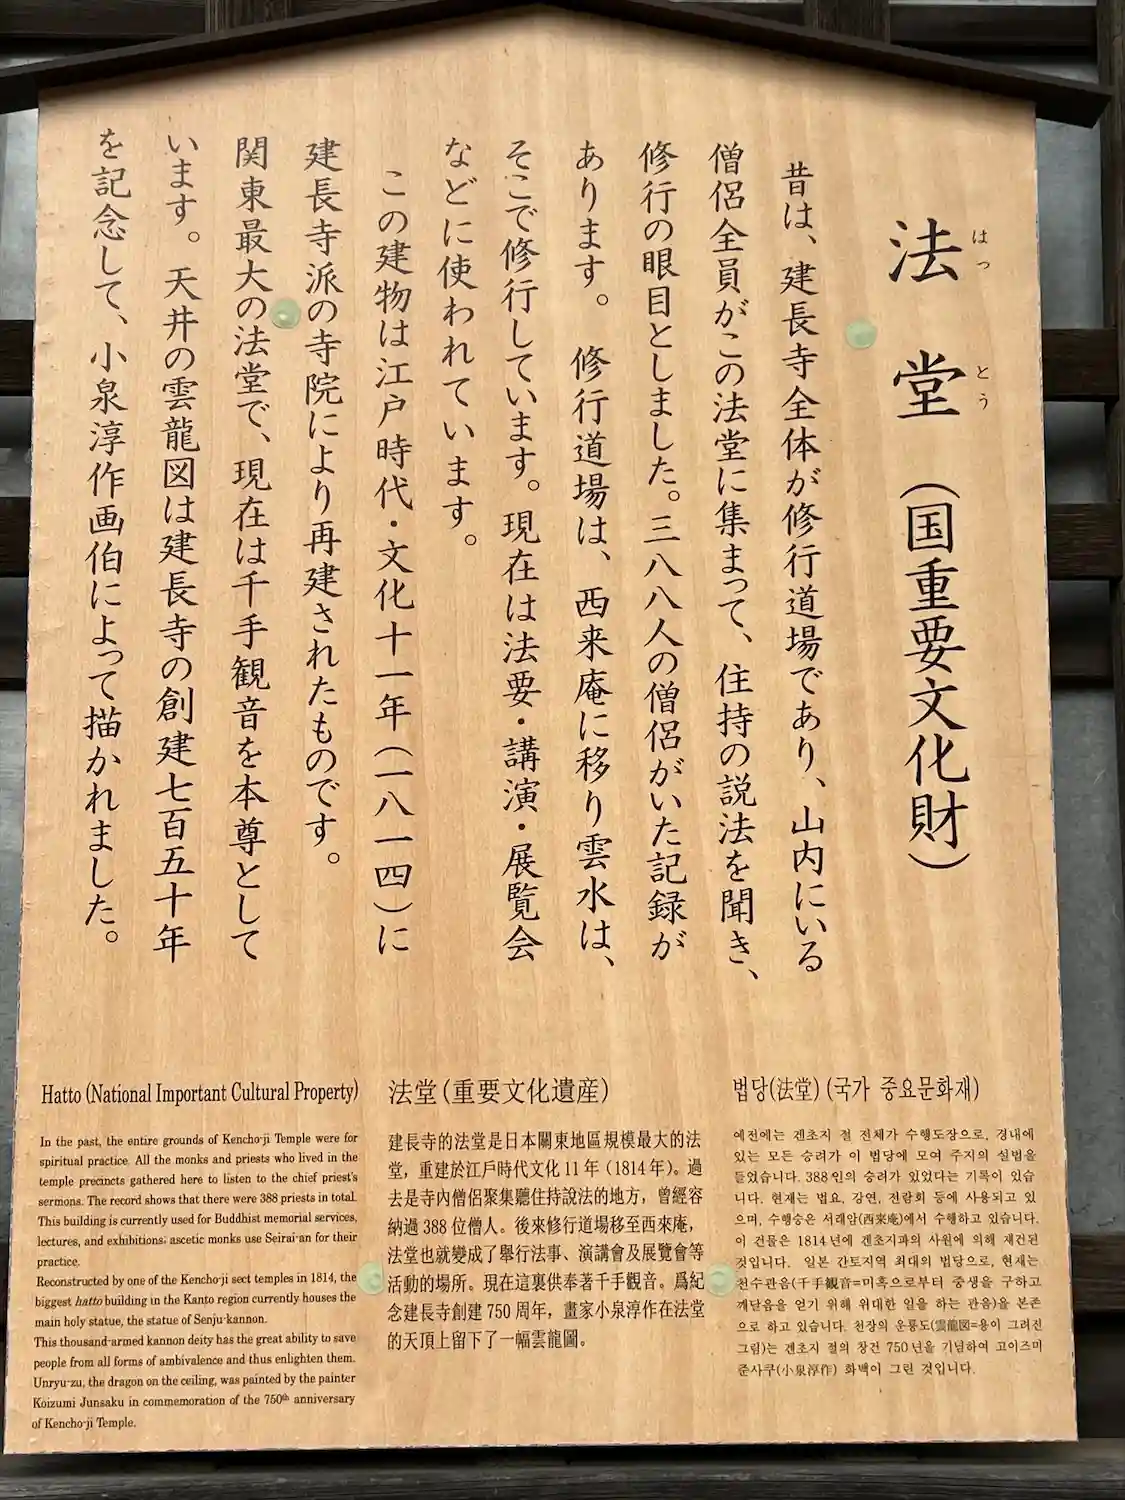 法堂（国重要文化財）
はっとう
昔は、建長寺全体が修行道場であり、山内にいる
僧侶全員がこの法堂に集まって、住持の説法を聞き、
修行の眼目としました。三八八人の僧侶がいた記録が
あります。 修行道場は、西来庵に移り雲水は、
そこで修行しています。現在は法要・講演・展覧会
などに使われています。
この建物は江戸時代・文化十一年（一八一四）に
建長寺派の寺院により再建されたものです。
関東最大の法堂で、現在は千手観音を本尊として
います。天井の雲龍図は建長寺の創建七百五十年
を記念して、小泉淳作画伯によって描かれました。
Hatto (National Important Cultural Property)
In the past, the entire grounds of Kencho-ji Temple were for
spiritual practice. All the monks and priests who lived in the
temple precincts gathered here to listen to the chief priest's
sermons. The record shows that there were 388 priests in total.
This building is currently used for Buddhist memorial services,
lectures, and exhibitions; ascetic monks use Seirai-an for their
practice.
Reconstructed by one of the Kencho-ji sect temples in 1814, the
biggest hatto building in the Kanto region currently houses the
main holy statue, the statue of Senju-kannon.
This thousand-armed kannon deity has the great ability to save
people from all forms of ambivalence and thus enlighten them.
Unryu-zu, the dragon on the ceiling, was painted by the painter
Koizumi Junsaku in commemoration of the 750th anniversary
of Kencho-ji Temple.
法堂（重要文化遺産）
建長寺的法堂是日本關東地區規模最大的法
堂，重建於江戶時代文化 11 年（1814 年）。過
去是寺內僧侶聚集聽住持說法的地方，曾經容
納過 388 位僧人。後來修行道場移至西來庵，
法堂也就變成了舉行法事、演講會及展覽會等
活動的場所。現在這裏供奉著千手觀音。爲紀
念建長寺創建 750 周年，畫家小泉淳作在法堂
的天頂上留下了一幅雲龍圖。
법당(法堂) (국가 중요문화재)
예전에는 겐초지 절 전체가 수행도장으로, 경내에
있는 모든 승려가 이 법당에 모여 주지의 설법을
들었습니다. 388인의 승려가 있었다는 기록이 있습
니다. 현재는 법요, 강연, 전람회 등에 사용되고 있
으며, 수행승은 서래암(西来庵)에서 수행하고 있습니다.
이 건물은 1814년에 겐초지파의 사원에 의해 재건된
것입니다. 일본 간토지역 최대의 법당으로, 현재는
천수관음(千手観音=미혹으로부터 중생을 구하고
깨달음을 얻기 위해 위대한 일을 하는 관음)을 본존
으로 하고 있습니다. 천장의 운룡도(雲龍図=용이 그려진
그림)는 겐초지 절의 창건 750년을 기념하여 고이즈미
준사쿠(小泉淳作) 화백이 그린 것입니다.